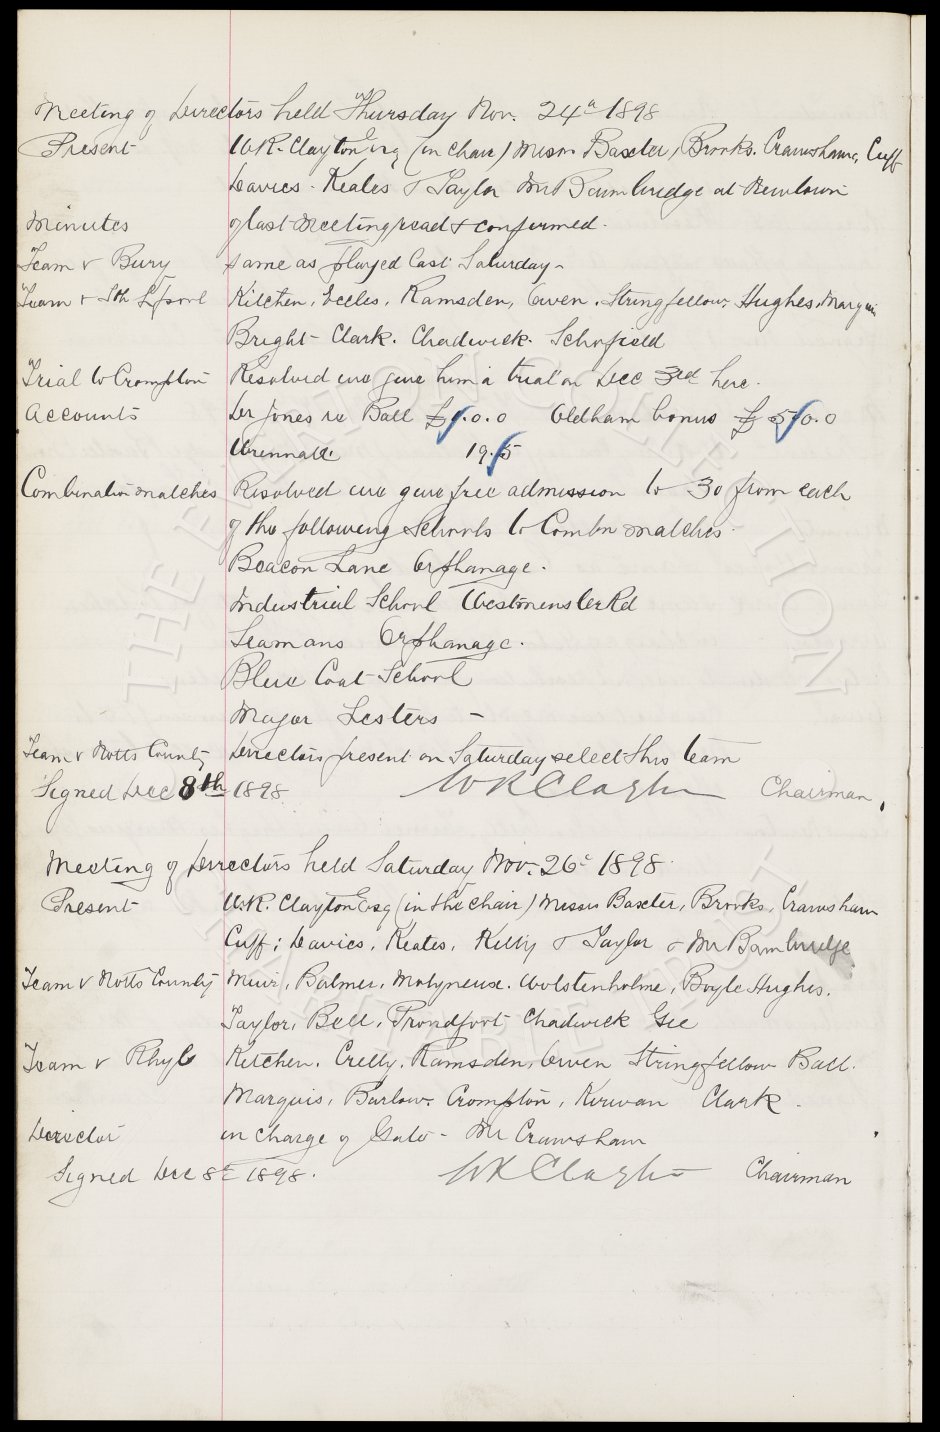 Meeting of Directors held Thursday Nov. 24th 1898
Present W.R. Clayton Esq (in Chair) Messrs Baxter, Brooks. Crawshaw, Cuff
Davies. Keates & Taylor Mr Bainbridge at Newtown
Minutes of last Meeting read & confirmed.
Team v Bury same as played last Saturday.
Team v Sth Lpool Kitchen, Eccles, Ramsden, Owen. Stringfellow Hughes, Marquis
Bright Clark. Chadwick. Schofield
Trial to Crompton Resolved we give him a trial on Dec 3rd here.
Accounts Dr Jones re Ball £9.0.0 Oldham bonus £50.0.0
Wrennall 19.5
Combination matches Resolved we give free admission to 30 from each
of the following Schools to Combn matches.
Beacon Lane Orphanage.
Industrial School Westminster Rd
Seamans Orphanage.
Blue Coat School
Major Lesters
Team v Notts County Directors present on Saturday select this team
Signed Dec 8th 1898 WR Clayton Chairman
Meeting of Directors held Saturday Nov. 26th 1898.
Present W.R. Clayton Esq (in the chair) Messrs Baxter, Brooks, Crawshaw
Cuff; Davies, Keates, Kelly & Taylor & Mr Bainbridge
Team v Notts County Muir, Balmer, Molyneux. Wolstenholme, Boyle Hughes.
Taylor, Bell, Proudfoot Chadwick Gee
Team v Rhyl Kitchen. Crelly, Ramsden, Owen Stringfellow Ball.
Marquis, Barlow. Crompton, Kirwan Clark.
Director in charge of Gate - Mr Crawshaw
Signed Dec 8th 1898. WR Clayton Chairman